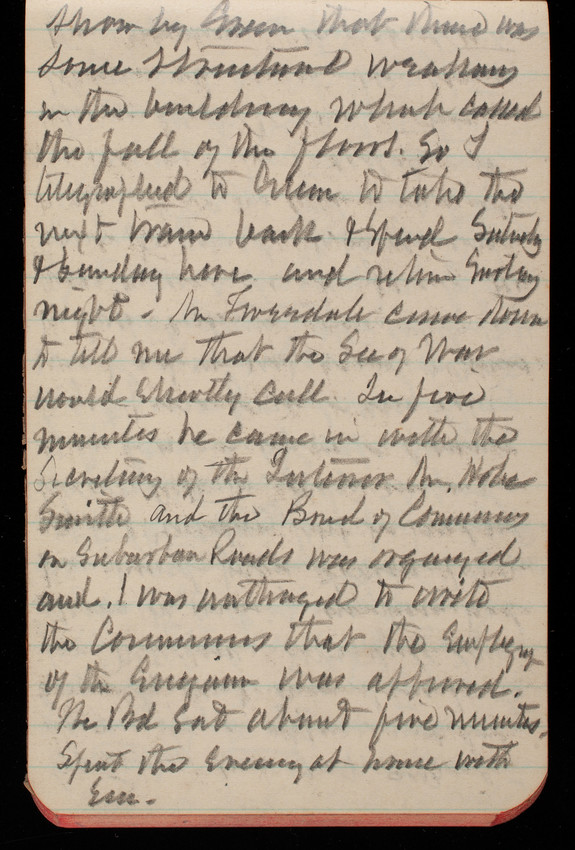 show by Green that there was
some structural weakness
in the building which caused
the fall of the floors. So I
telegraphed to Green to take the
next train back & spend Saturday
& Sunday here and return Sunday
night - Mr Tweedale came down
to tell me that the Sec of War
would shortly call. In five
minutes he came in with the
Secretary of the Interior Mr. Hoke
Smith and the Board of Commrs
on Suburban Roads was organized
and I was authorized to write
the Commrs that the Employ
of the Engineer was approved.
The Bd sat about five minutes.
Spent the evening at home with
Em.